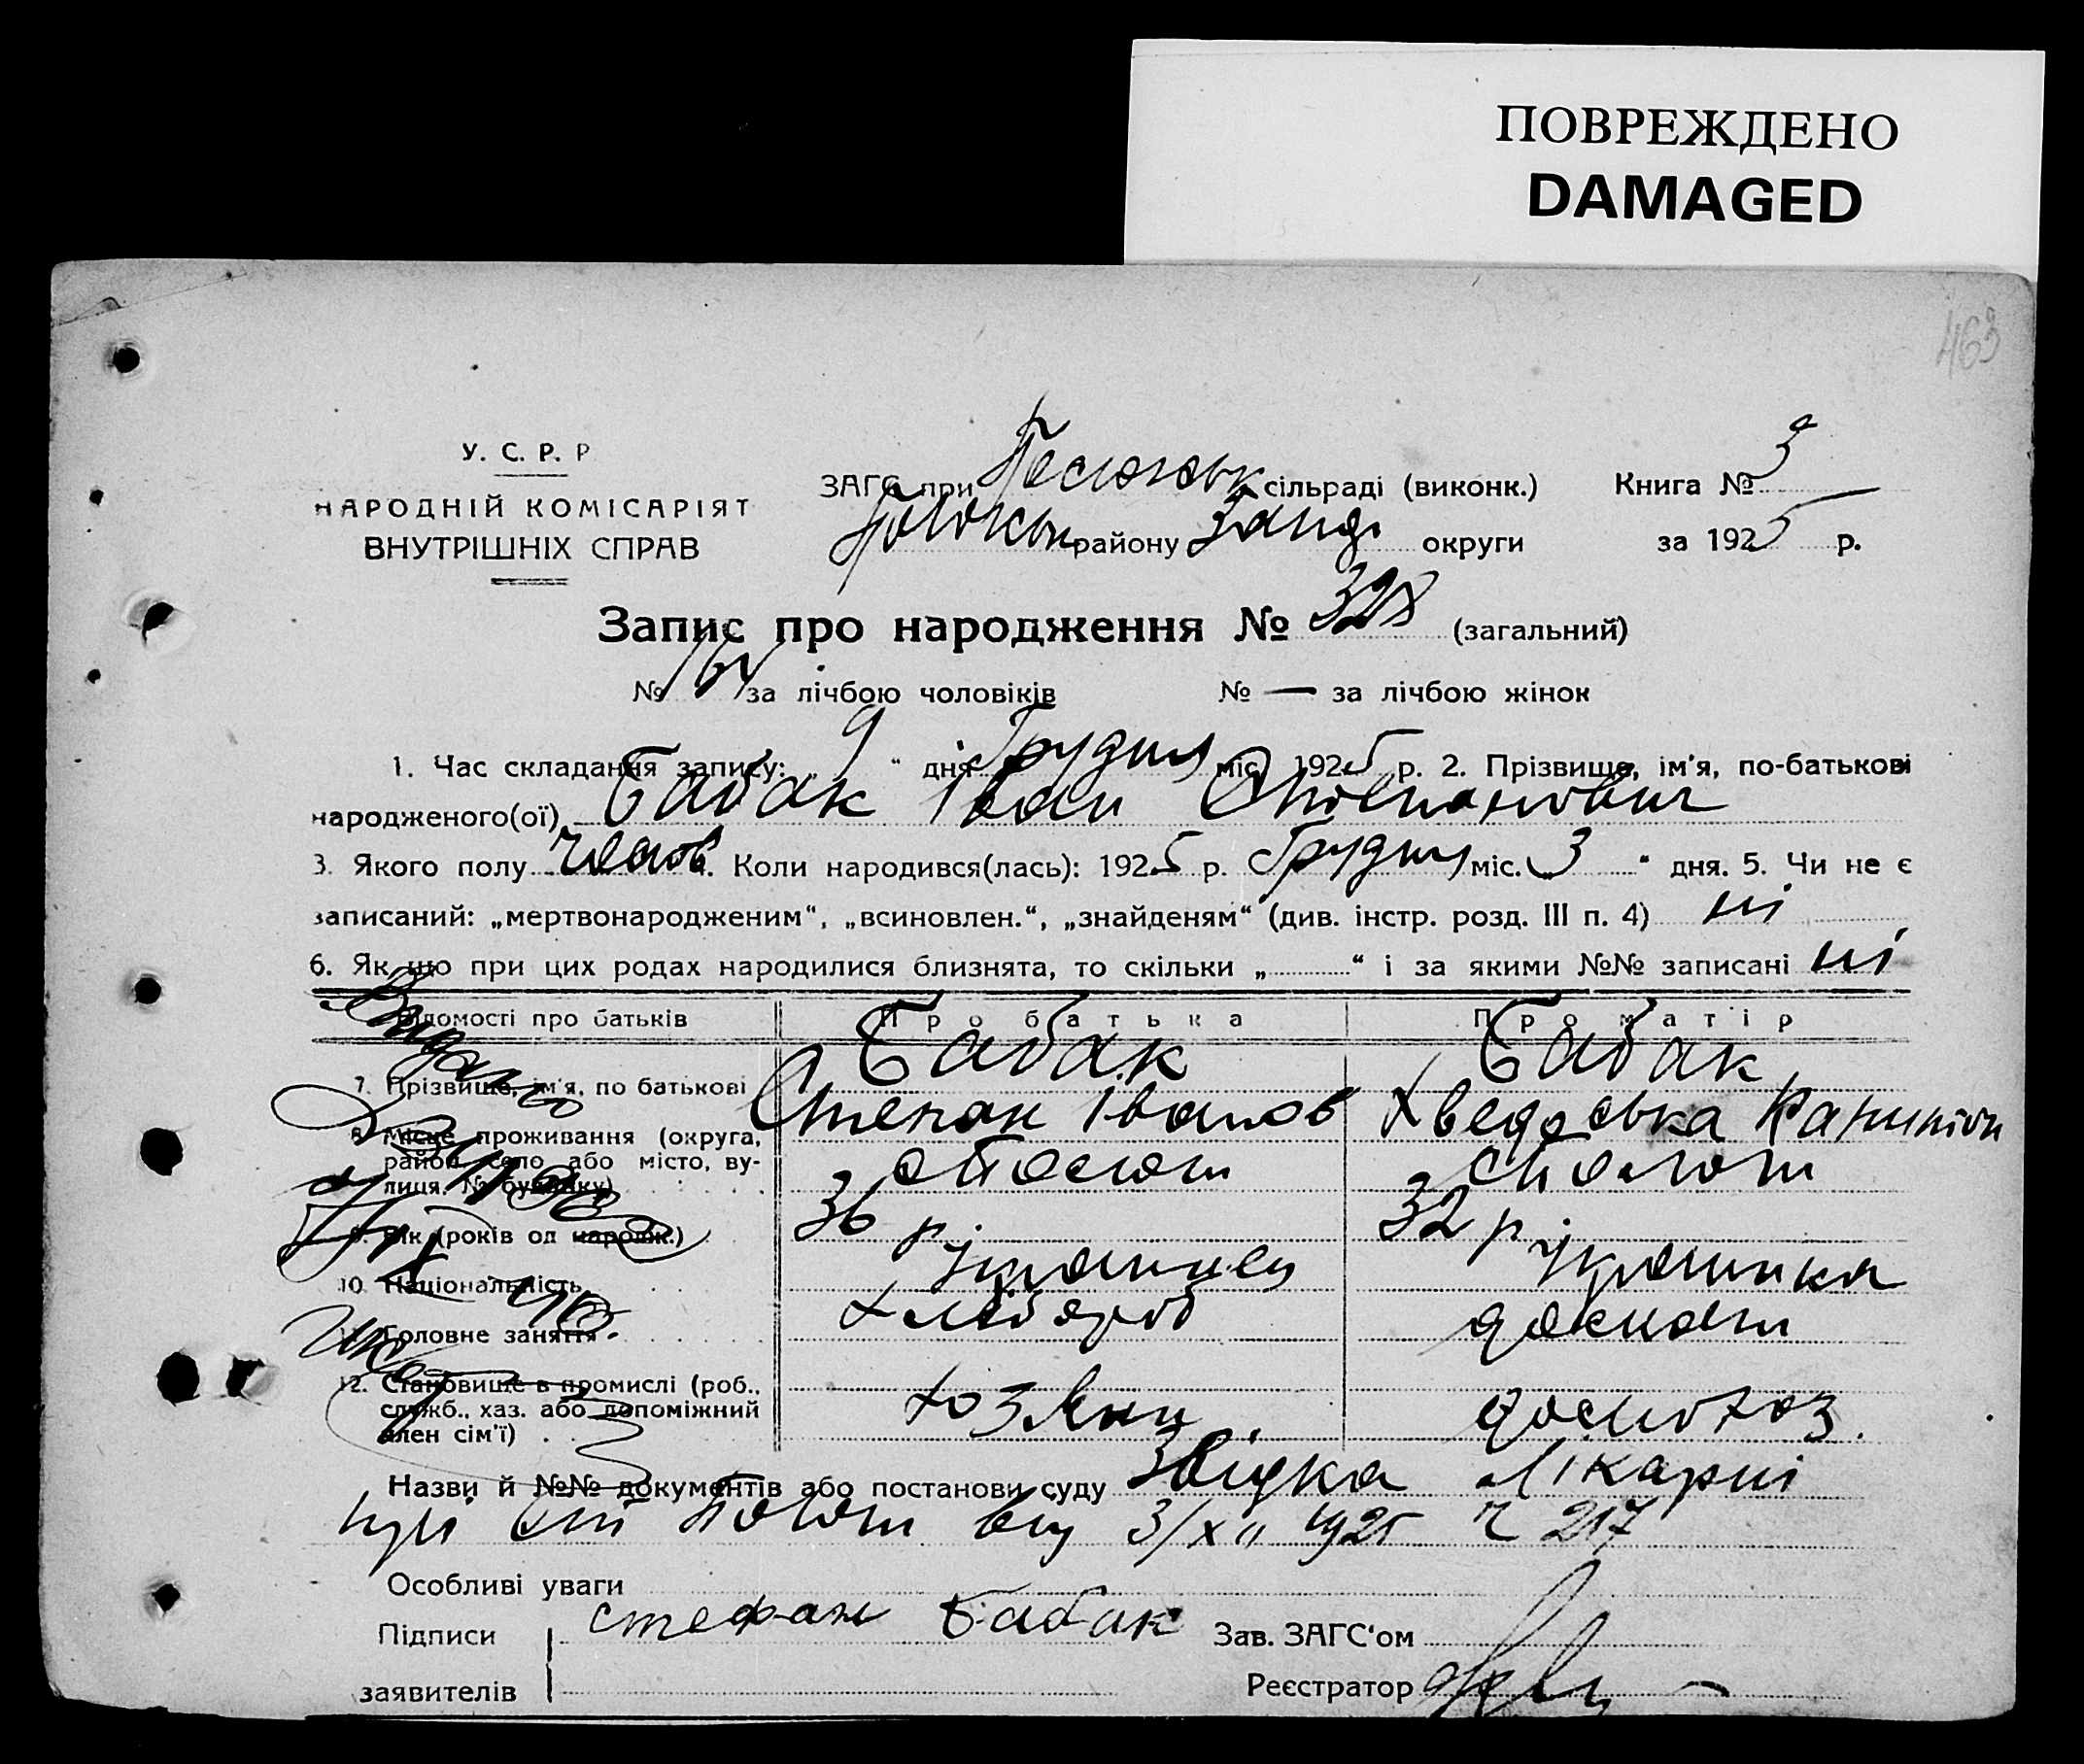 ПОВРЕЖДЕНО
DAMAGED
463
У. С. Р. Р
НАРОДНІЙ КОМІСАРІЯТ
ВНУТРІШНІХ СПРАВ
ЗАГС при сільраді (виконк.) Книга № 3
району округи за 1925 р.
Запис про народження № 328 (загальний)
№ 164 за лічбою чоловіків № — за лічбою жінок
1. Час складання запису: „ 9 “ дня Грудня міс. 1925 р. 2. Прізвище, ім'я, по-батькові
народженого(ої) Бабак Іван Степанович
3. Якого полу чолов. 4. Коли народився(лась): 1925 р. Грудня міс. „ 3 “ дня. 5. Чи не є
записаний: „мертвонародженим“, „всиновлен.“, „знайденям“ (див. інстр. розд. III п. 4) ні
6. Як що при цих родах народилися близнята, то скільки „ “ і за якими №№ записані ні
Відомості про батьків Про батька Про матір
7. Прізвище, ім'я, по батькові Бабак Степан Іванов Бабак Хведоська
8. Місце проживання (округа,
район, село або місто, ву-
лиця, № будинку)
9. Вік (років од народж.) 36 р 32 р
10. Національність українец українка
11. Головне заняття хлібороб
12. Становище в промислі (роб.,
служб., хаз. або допоміжний
член сім'ї) хозяин
Назви й №№ документів або постанови суду Звідка лікарні
при від 3/XII 1925 ч 217
Особливі уваги
Підписи стефан Бабак Зав. ЗАГС'ом
заявителів Реєстратор